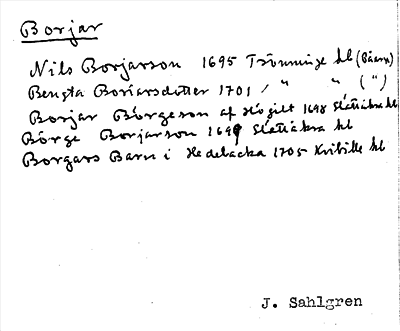 Borjar
Nils Borjarson 1695 Trönninge kl (Båarp)
Bengta Boriarsdotter 1701 / " " (")
Borjar Börgeson af Högilt 1698 Slättåkra kl
Börge Borjarson 1699 Slättåkra kl
Borgars Barn i Hedebacka 1705 Kvibille kl
J. Sahlgren